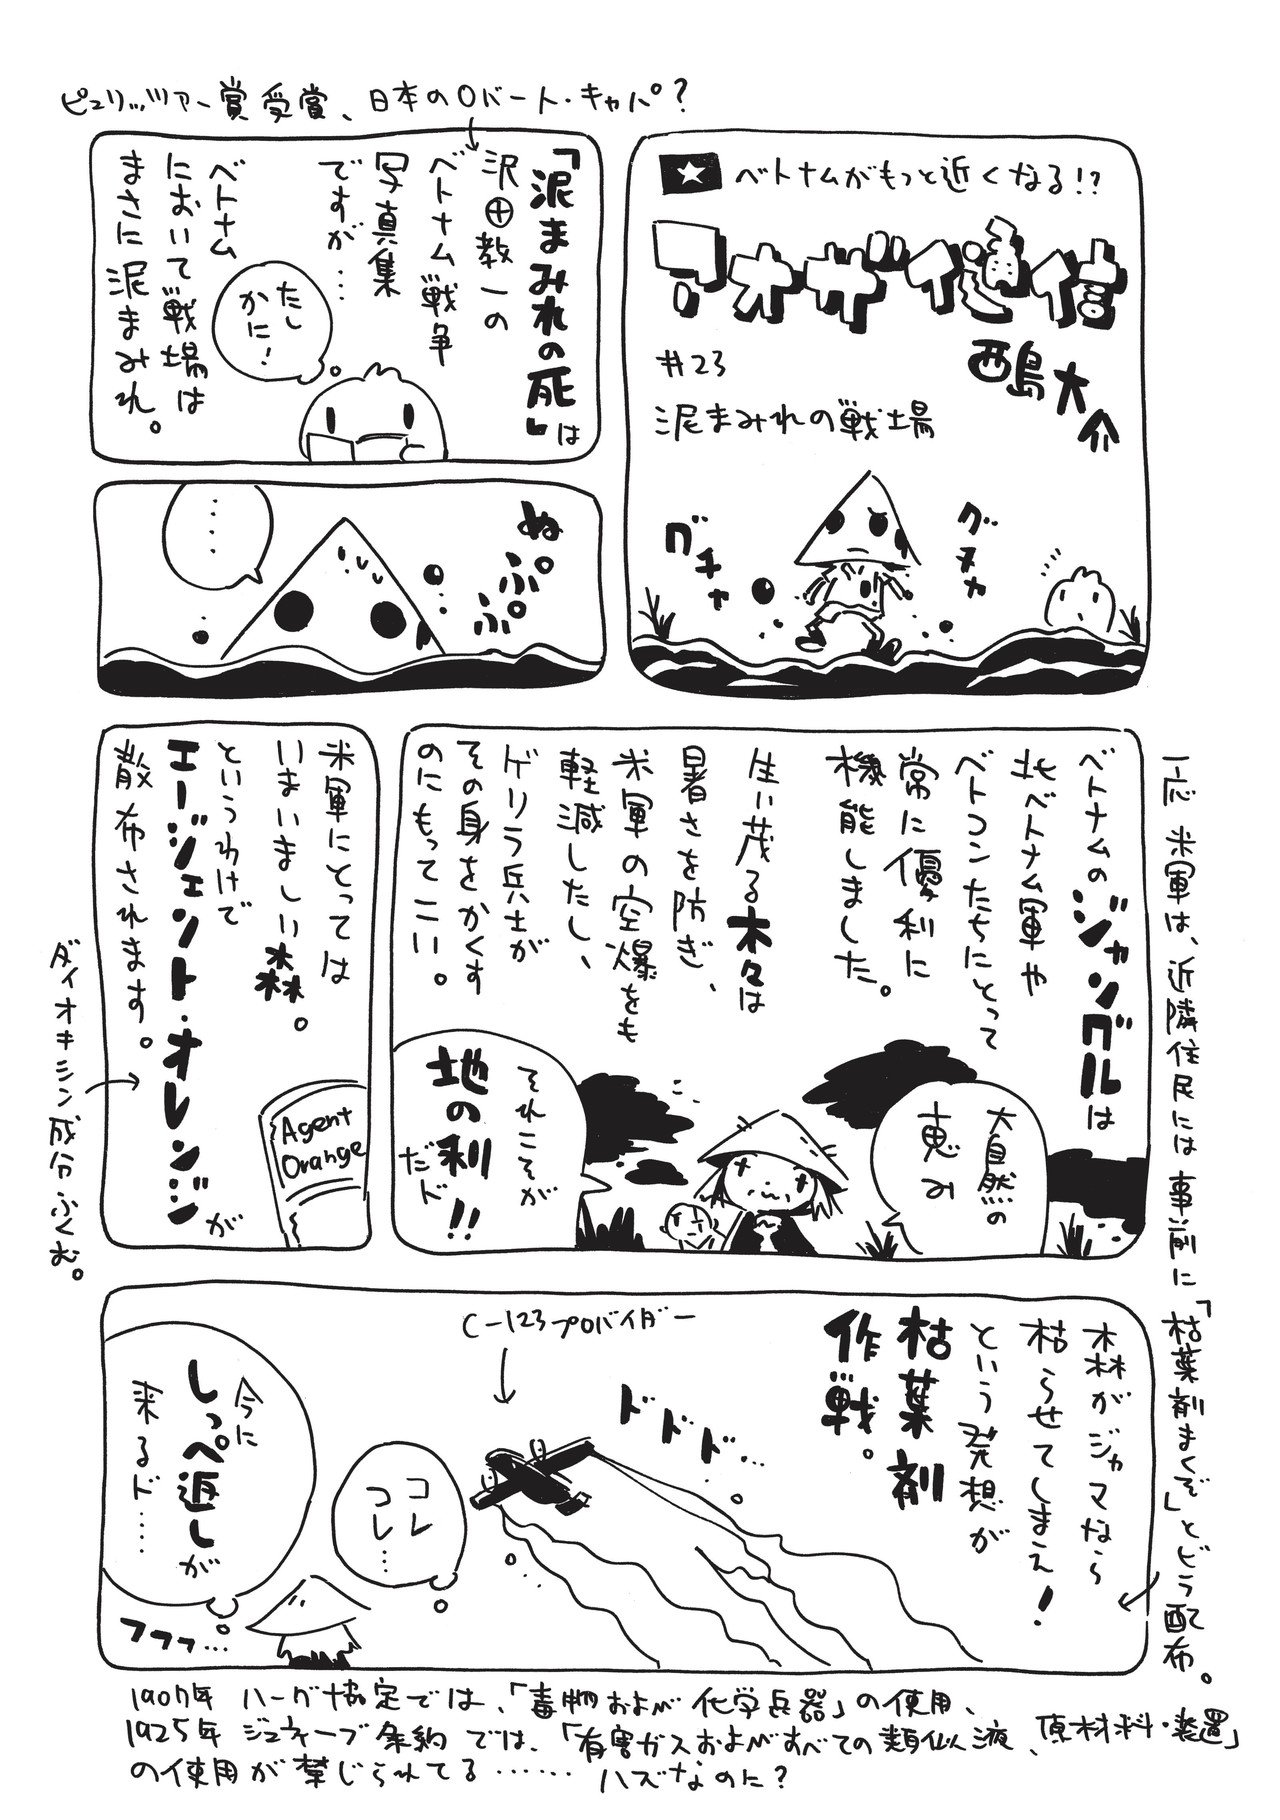 ベトナムがもっと近くなる!?
アオザイ通信
西島大介
#23
泥まみれの戦場
グチャ
グヌヌ
ピュリッツァー賞受賞、日本のロバート・キャパ?
「泥まみれの死」は
沢田教一の
ベトナム戦争
写真集
ですが…
ベトナム
において戦場は
まさに泥まみれ。
たし
かに!
ぬぷぷ
……
ベトナムのジャングルは
北ベトナム軍や
ベトコンたちにとって
常に優利に
機能しました。
生い茂る木々は
暑さを防ぎ、
米軍の空爆をも
軽減したし、
ゲリラ兵士が
その身をかくす
のにもってこい。
大自然の
恵み
それこそが
地の利!!
だド
米軍にとっては
いまいましい森。
というわけで
エージェント・オレンジが
散布されます。
Agent
Orange
ダイオキシン成分ふくむ。
一応 米軍は、近隣住民には事前に「枯葉剤まくぞ」とビラ配布。
森がジャマなら
枯らせてしまえ!
という発想が
枯葉剤
作戦。
C-123プロバイダー
ドドド…
コレ
コレ…
今に
しっぺ返しが
来るド……
フフフ…
1907年 ハーグ協定では、「毒物および化学兵器」の使用、
1925年 ジュネーブ条約では、「有害ガスおよびすべての類似液、原材料・装置」
の使用が禁じられてる…… ハズなのに?